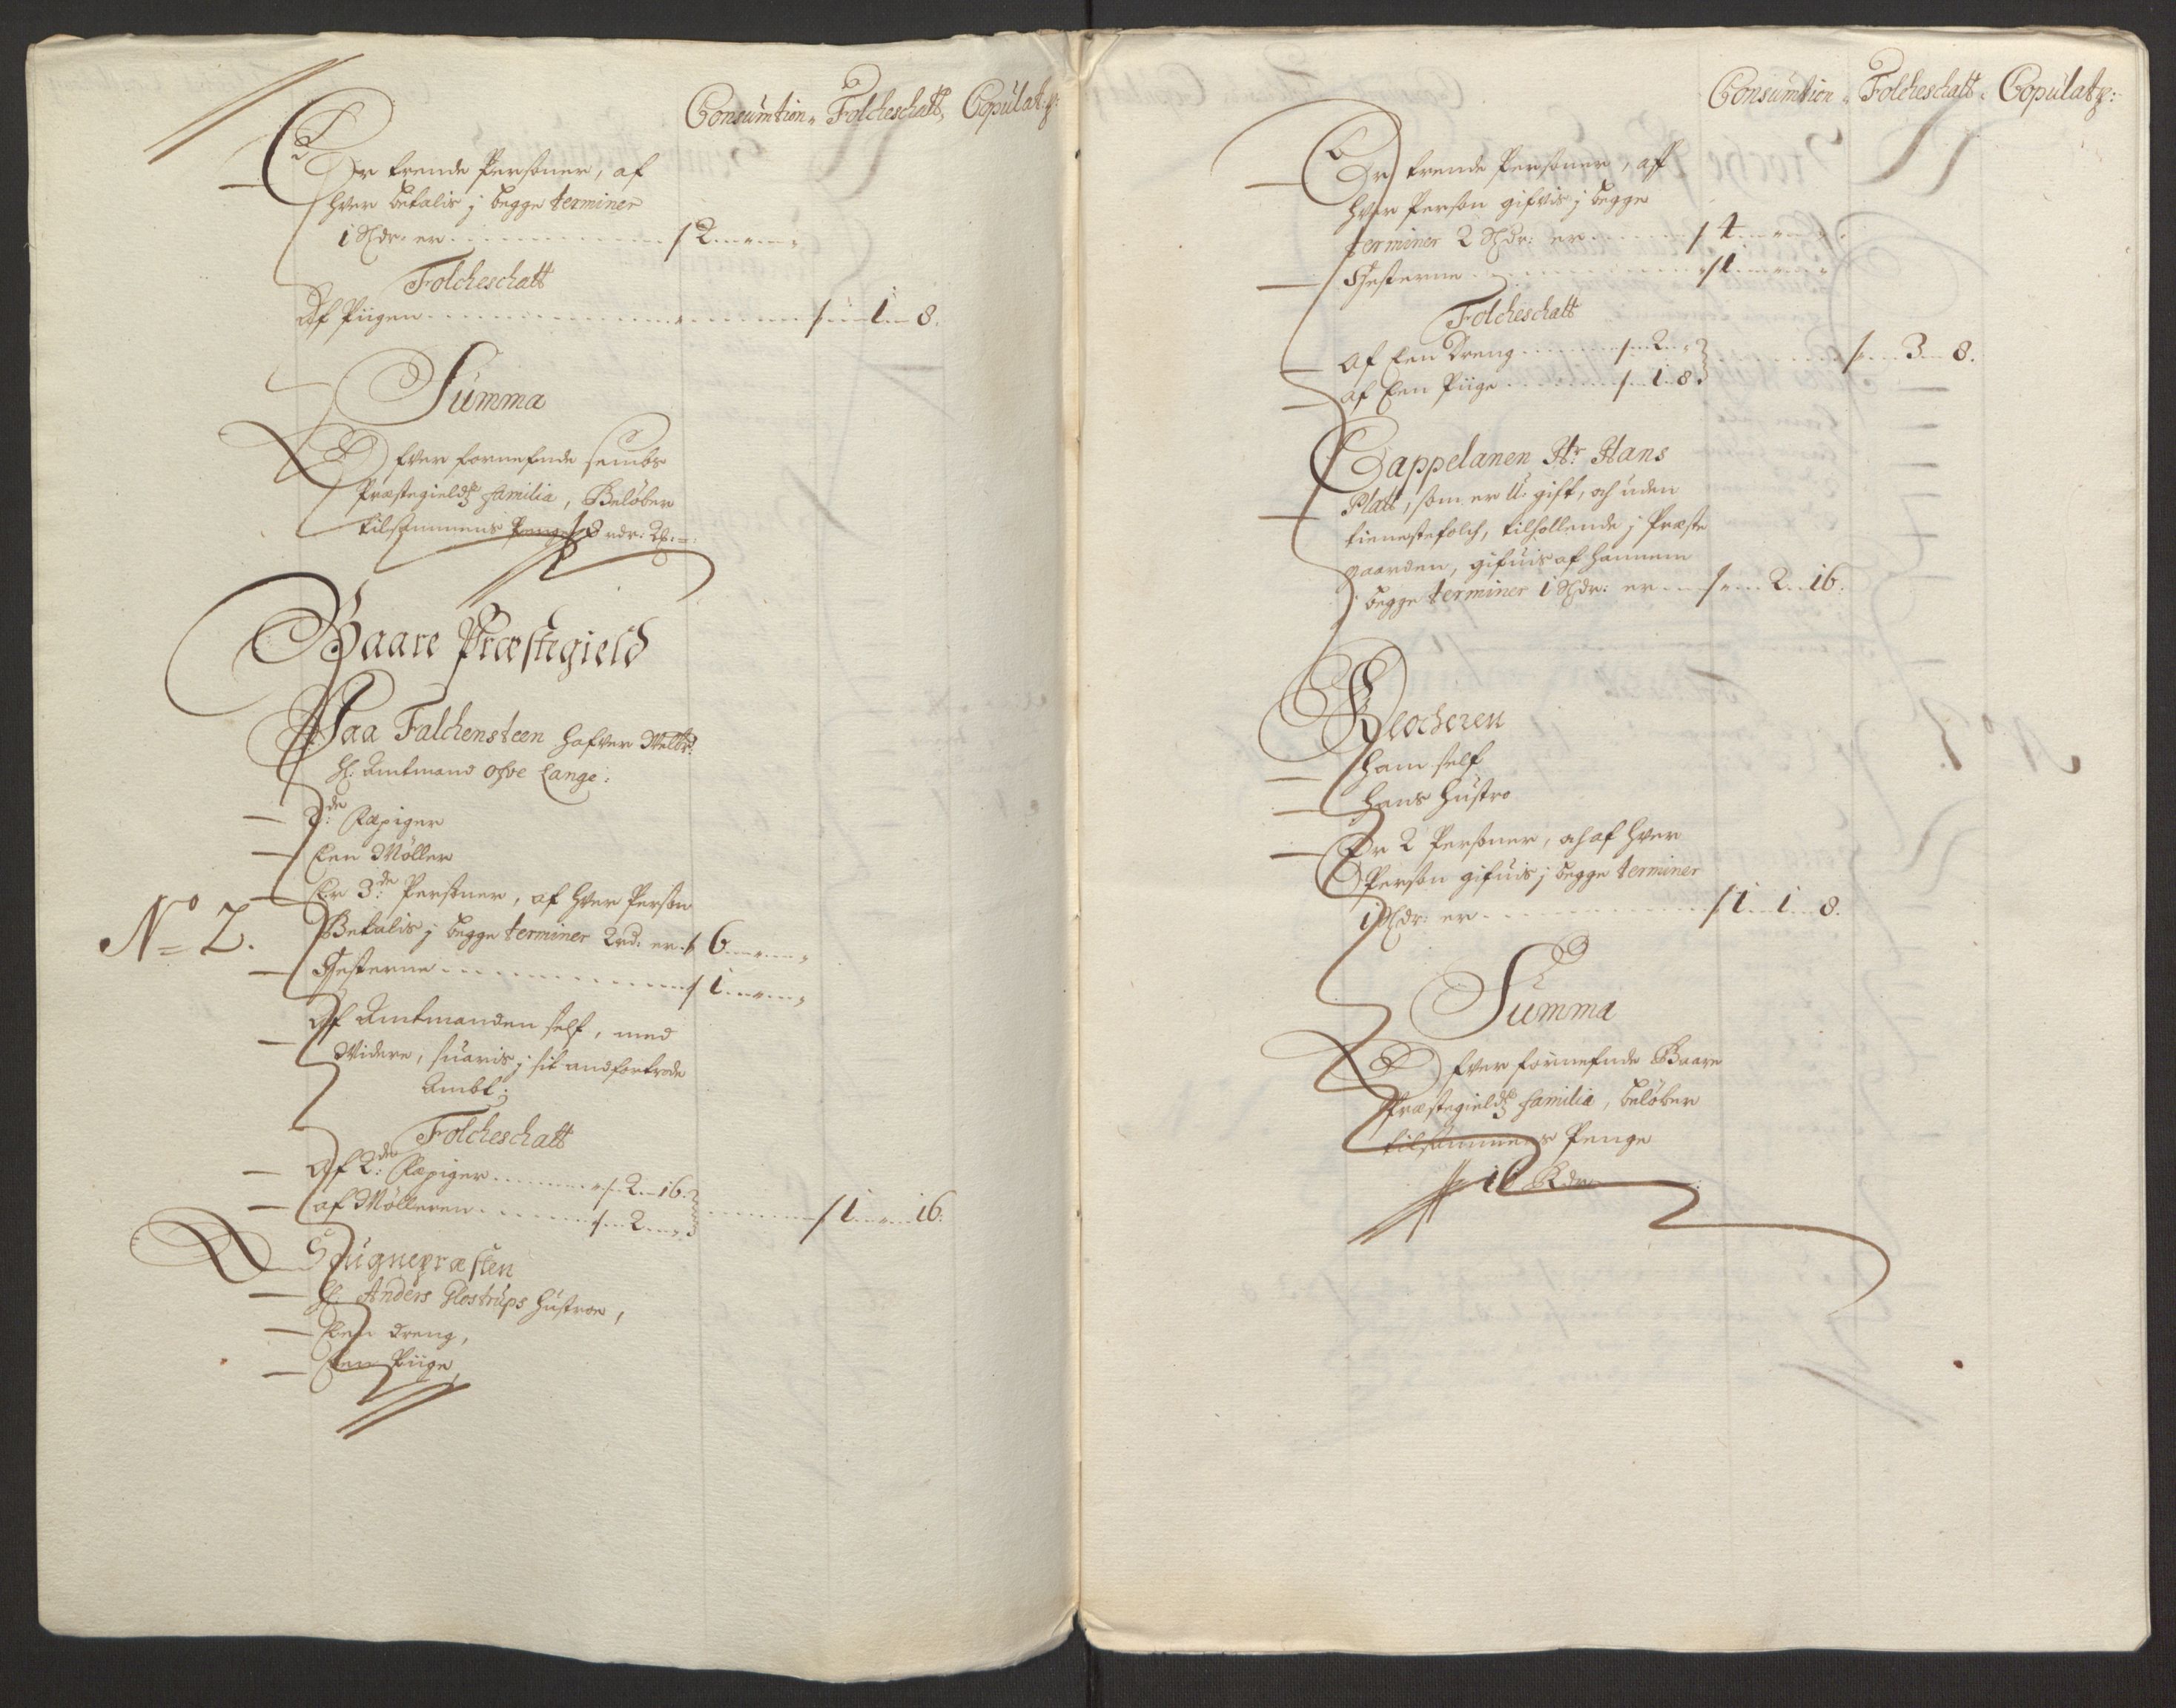 Consumtion. Folcheschatt, Copulat:p:
Er trende Personer, af
hver betalis j begge terminer
1 Rdr: er . . . . . . . . / 2 „ „
Folcheschatt
Af Piigen . . . . . . . . / „ 1 „ 8.
Summa
Ofver fornefnde Sembs
Præstegieldtz familia, Beløber
tilsammens Penge 8 rdr: 2
Baare Præstegield
Paa Falchensteen hafver Welbr:
Hl. Amtmand Ofve Lange:
2de: Læpiger
Een Møller
Er 3de: Personer, af hver Person
No 2.
Betalis j begge terminer 2 rd. er / 6 „ „
Hesterne . . . . . . . . / 1 „ „
Af Amtmanden self, med
Widere, suaris j sit andfortrode
Ambt;
Folcheschatt
Af 2de: Læpiger . . . . . / 2 „ 16.
af Mølleren . . . . . . / 2 „ . . . . . / 1 „ 16.
Sougnepræsten
Hl. Anders Glostrups Hustroe,
Een Dreng,
Een Piige,
Consumtion. Folcheschatt. Copulatp:
Er trende Personer, aff
hver Person gifvis j begge
terminer 2 Rdr: er . . . . . / 4 „ „
Hesterne . . . . . . . . / 1 „ „
Folcheschatt
Af Een Dreng . . . . . / 2 „
af Een Piige . . . . . / 1 „ 8 . . . . . / „ 3 „ 8.
Cappelanen Hr. Hans
Platt, som er U-gift, och uden
tienestefolch, tilhollende j Præste
gaarden, gifuis af hannem
j begge terminer 1 Rdr: er / „ 2 „ 16.
Klocheren
ham self
hans Hustro
Er 2 Personer, och af hver
Person gifuis j begge terminer
1 Rdr: er . . . . . . . . / 1 „ 1 „ 8.
Summa
Ofver fornefnde Baare
Præstegieldtz familia, beløber
tilsammens Penge
Rdr